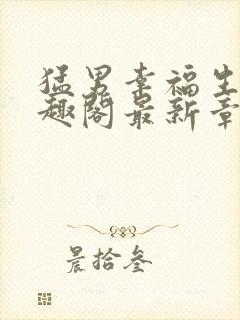 猛男幸福生
趣阁最新章
晨拾叁